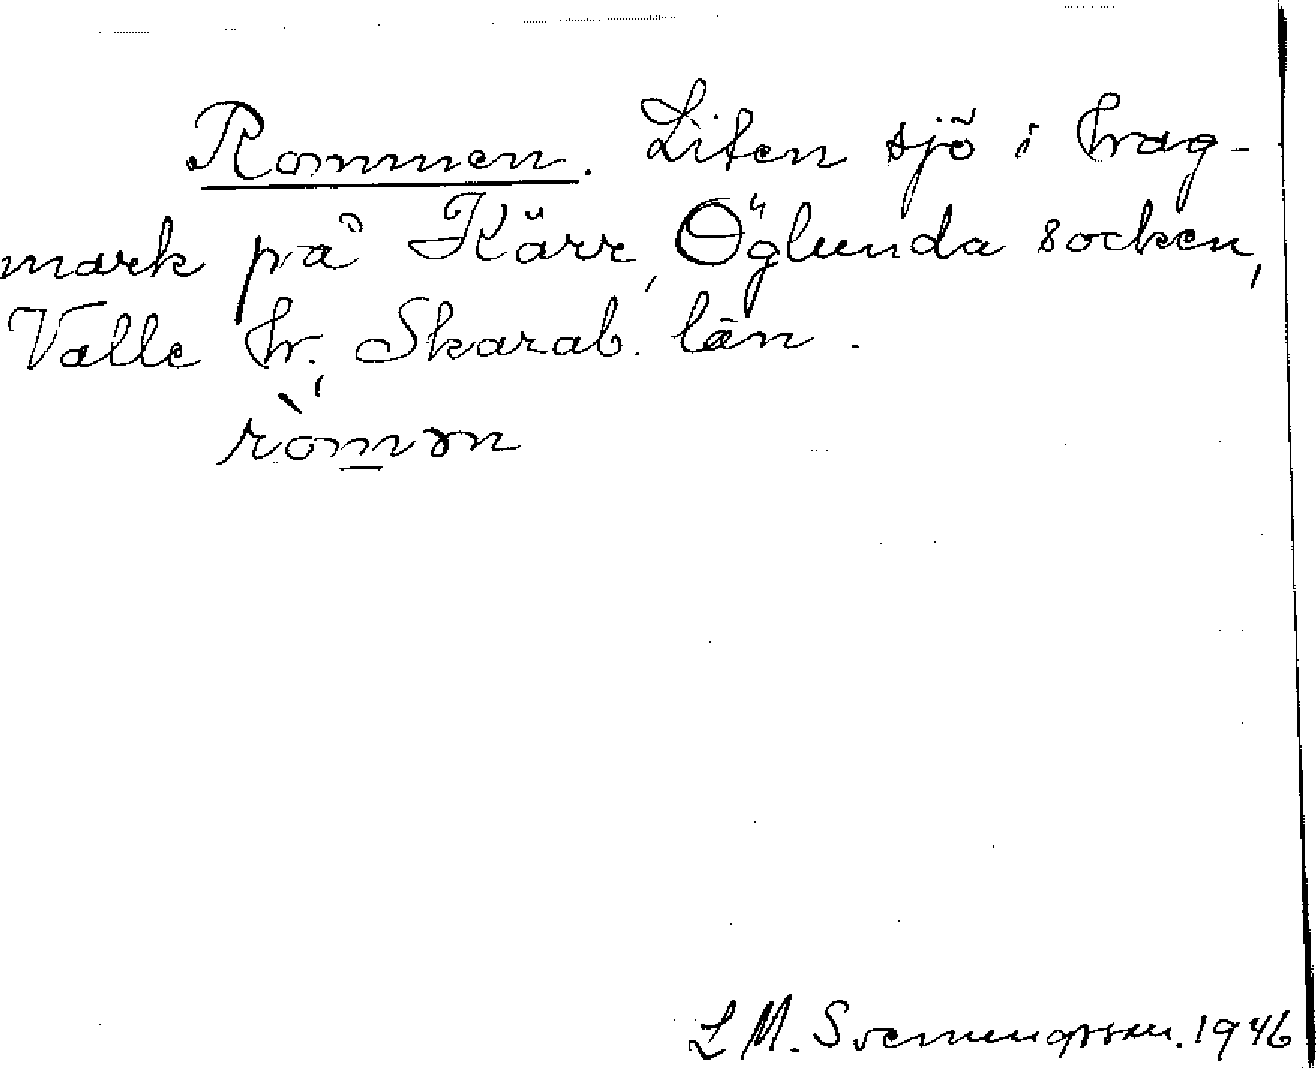 Rommen. Liten sjö i hag-
mark på Kärr, Öglunda socken,
Valle hr. Skarab. län.
ròmən
L M. Svenungsson. 1946